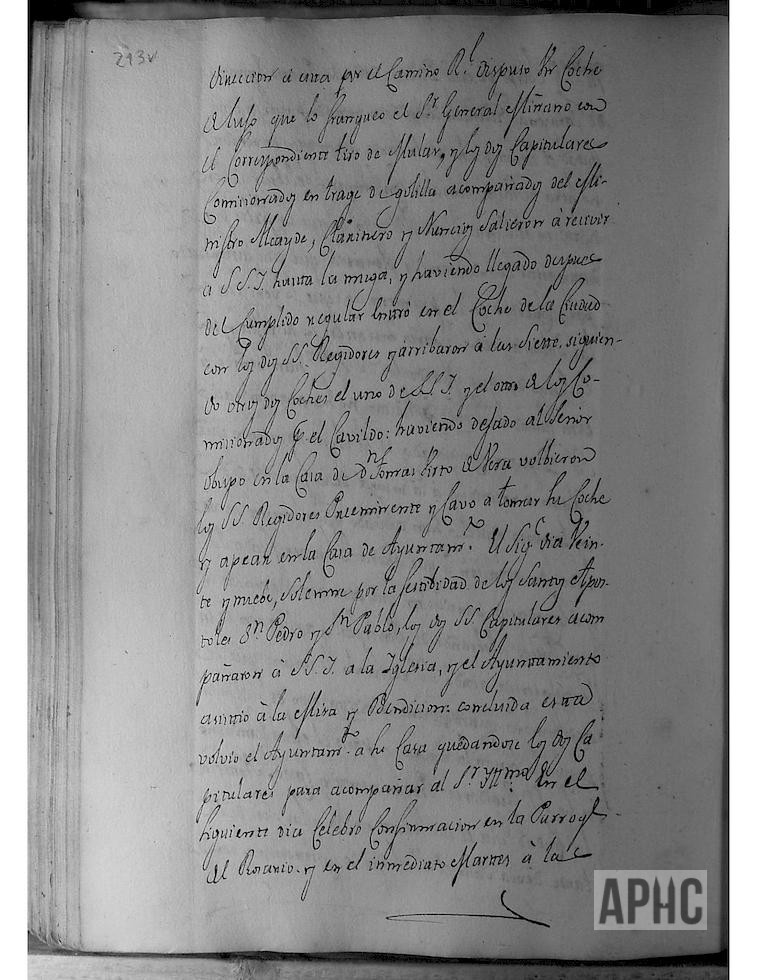 293v
direccion à esta por el Camino R.l dispuso Un Coche
de luso que lo franqueo el S.r General Miñano con
el Correspondiente tiro de Mulas, y los dos Capitulares
Comisionados en trage de golilla acompañados del Mi-
nistro Alcayde, Clarinero y Nuncios Salieron à recivir
a S.S.I. hasta la muga, y haviendo llegado despues
del Cumplido regular entrò en el Coche de la Ciudad
con los dos SS. Regidores y arribaron à las Siette, siguien-
do otros dos Coches el uno de S.S.I. y el otro de los Co-
misionados p.r el Cavildo: haviendo dejado al Señor
obispo en la Casa de d.n Tomas Virto de Vera volbieron
los SS. Regidores Preeminente y Cavo a tomar su Coche
y apear en la Casa de Ayuntam.to El Sig.te dia Vein-
te y nuebe, Solemne por la festibidad de los Santos Apos-
toles S.n Pedro y S.n Pablo, los dos SS. Capitulares acom
pañaron à S.S.I. a la Iglesia, y el Ayuntamiento
asistio à la Misa y Bendicion: concluida esta
volvio el Ayuntam.to a su Casa quedandose los dos Ca
pitulares para acompañar al S.r Yll.mo En el
siguiente dia Celebro Confirmacion en la Parroq.l
del Rosario. y en el inmediato Martes à las
APHC